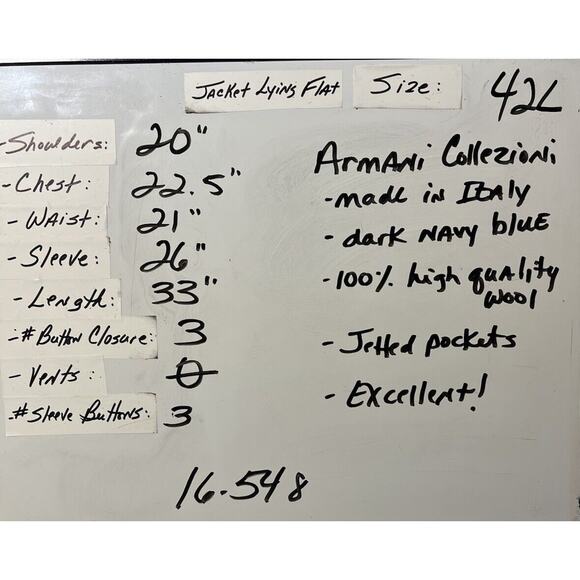 Jacket Lying Flat Size: 42L
- Shoulders: 20"
- Chest: 22.5"
- Waist: 21"
- Sleeve: 26"
- Length: 33"
- # Button Closure: 3
- Vents: 0
# Sleeve Buttons: 3
Armani Collezioni
- made in Italy
- dark navy blue
- 100% high quality
wool
- Jetted pockets
- Excellent!
16-548